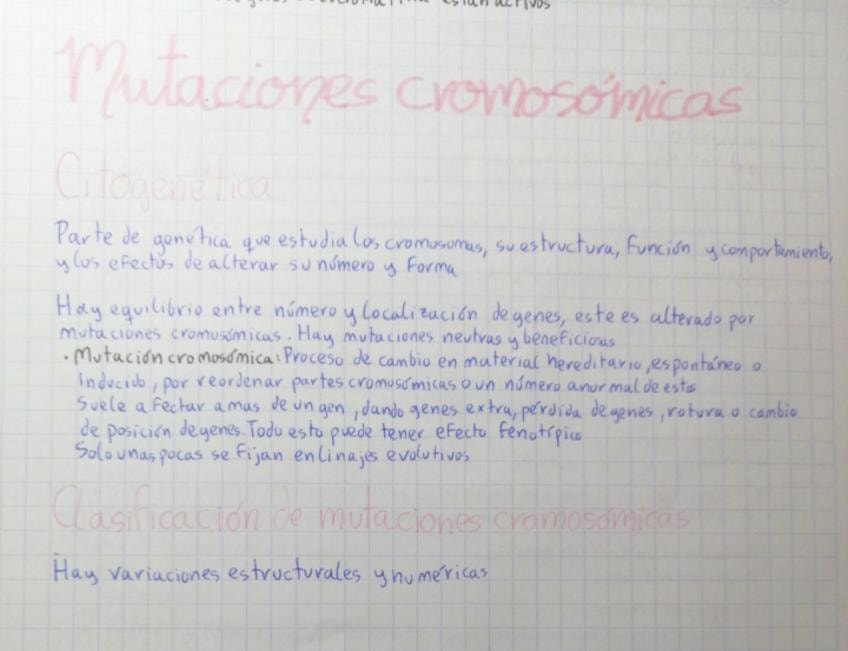 están activos
Mutaciones cromosómicas
Citogenética
Parte de genética que estudia los cromosomas, su estructura, función y comportamiento,
y los efectos de alterar su número y forma
Hay equilibrio entre número y localización de genes, este es alterado por
mutaciones cromosómicas. Hay mutaciones neutras y beneficiosas
· Mutación cromosómica: Proceso de cambio en material hereditario, espontáneo o
inducido, por reordenar partes cromosómicas o un número anormal de estos
Suele afectar a mas de un gen, dando genes extra, pérdida de genes, rotura o cambio
de posición de genes. Todo esto puede tener efecto fenotípico
Solo unas pocas se fijan en linajes evolutivos
Clasificación de mutaciones cromosómicas
Hay variaciones estructurales y numéricas